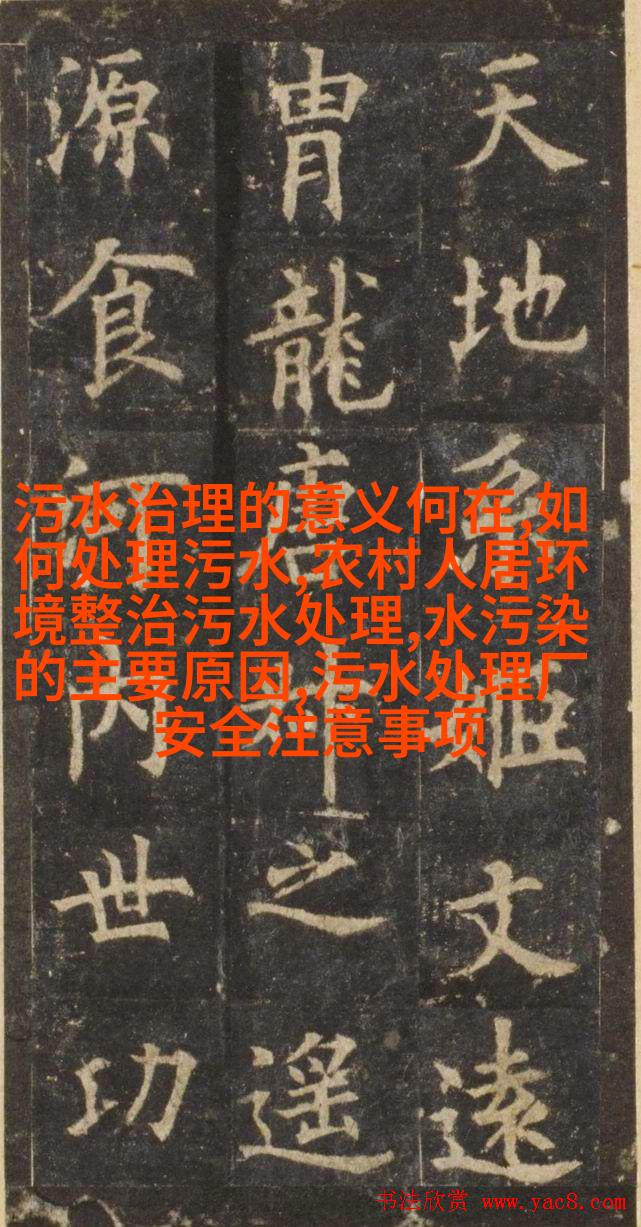 天地系姬文遠
冑龍之遥
源食河内世功
污水治理的意义何在,如
何处理污水,农村人居环
境整治污水处理,水污染
的主要原因,污水处理厂
安全注意事项
书法欣赏 www.yac8.com